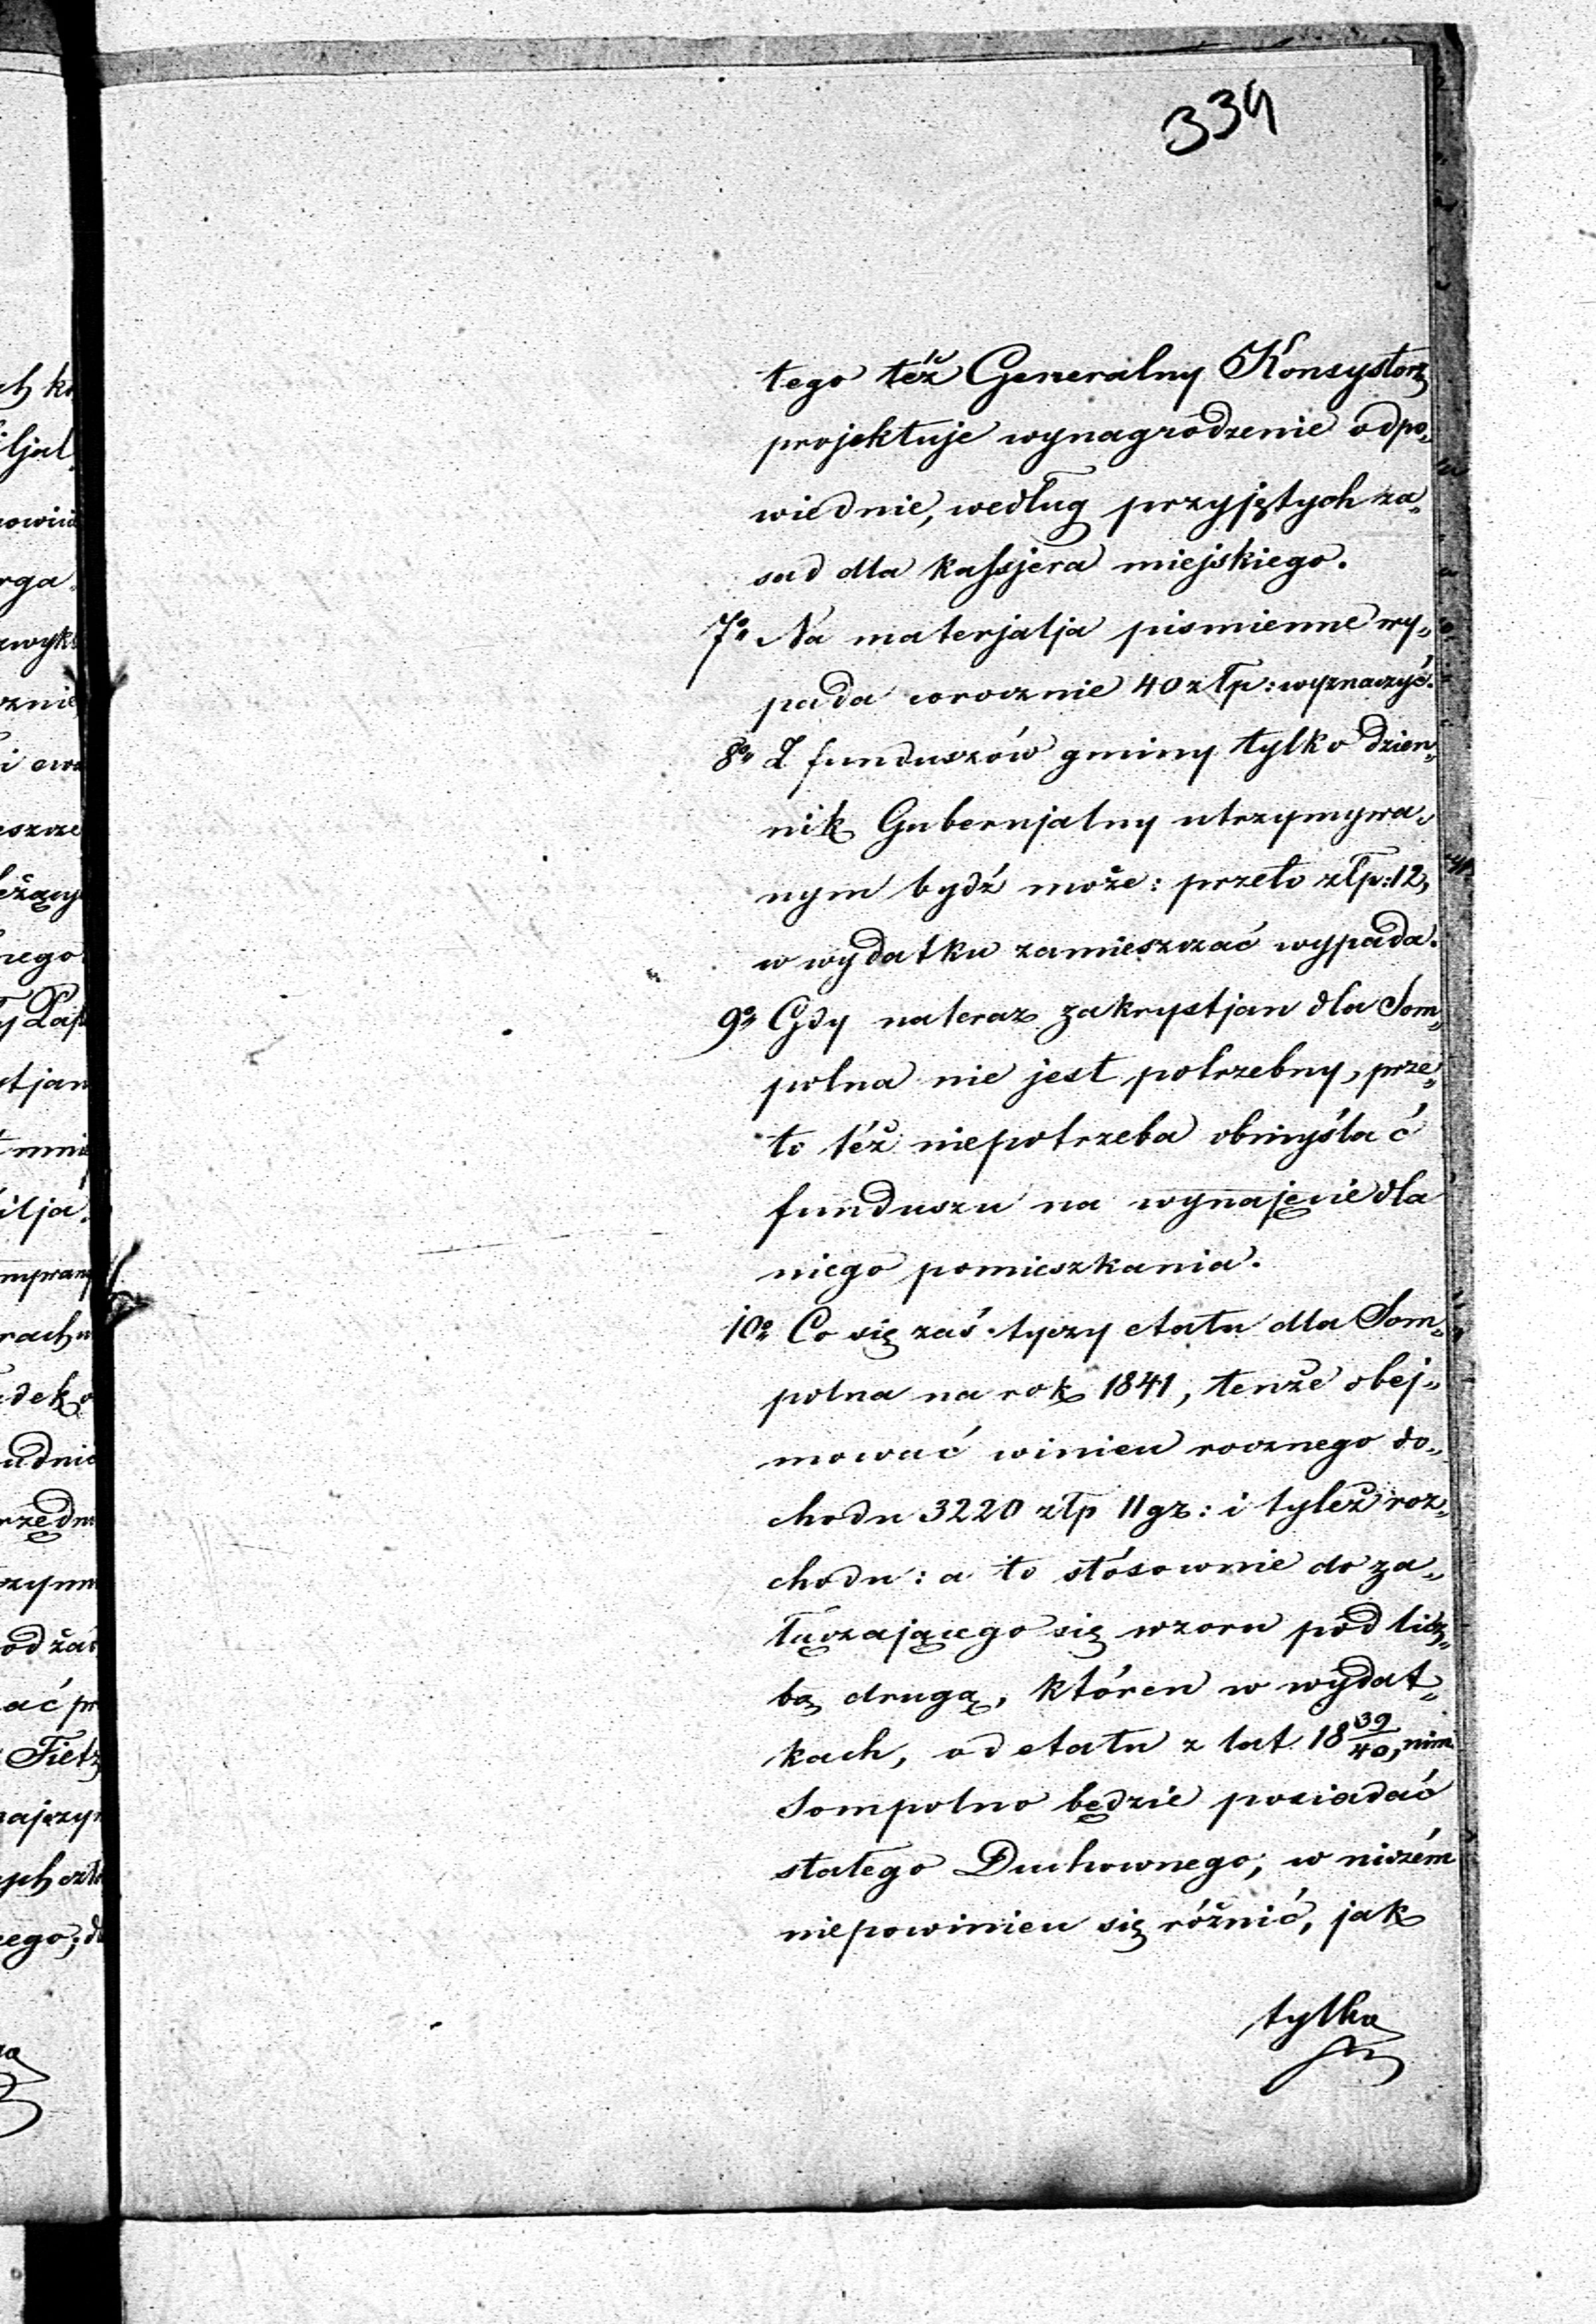 334
tego też Generalny Konsystorz
projektuje wynagrodzenie odpo„
wiednie, według przyjętych za„
sad dla kassjera miejskiego.
7o Na materjalja pismienne wy„
pada corocznie 40 złp: wyznaczyć.
8o Z funduszów gminy tylko dzien„
nik Gubernjalny utrzymywa„
nym bydź może: przeto złp: 12,
w wydatku zamieszczać wypada.
9o Gdy nateraz zakrystjan dla Som„
polna nie jest potrzebny, prze„
to też niepotrzeba obmyślać
funduszu na wynajęcie dla
niego pomieszkania.
10o Co się zaś tyczy etatu dla Som„
polna na rok 1841, tenże obej„
mować winien rocznego do„
chodu 3220 złp 11 gr: i tyleż roz„
chodu: a to stósownie do za„
łączającego się wzoru pod licz„
bą drugą, któren w wydat„
kach, od etatu z lat 18 39/40, nim
Sompolno będzie posiadać
stałego Duchownego, w niczém
niepowinien się różnić, jak
tylko